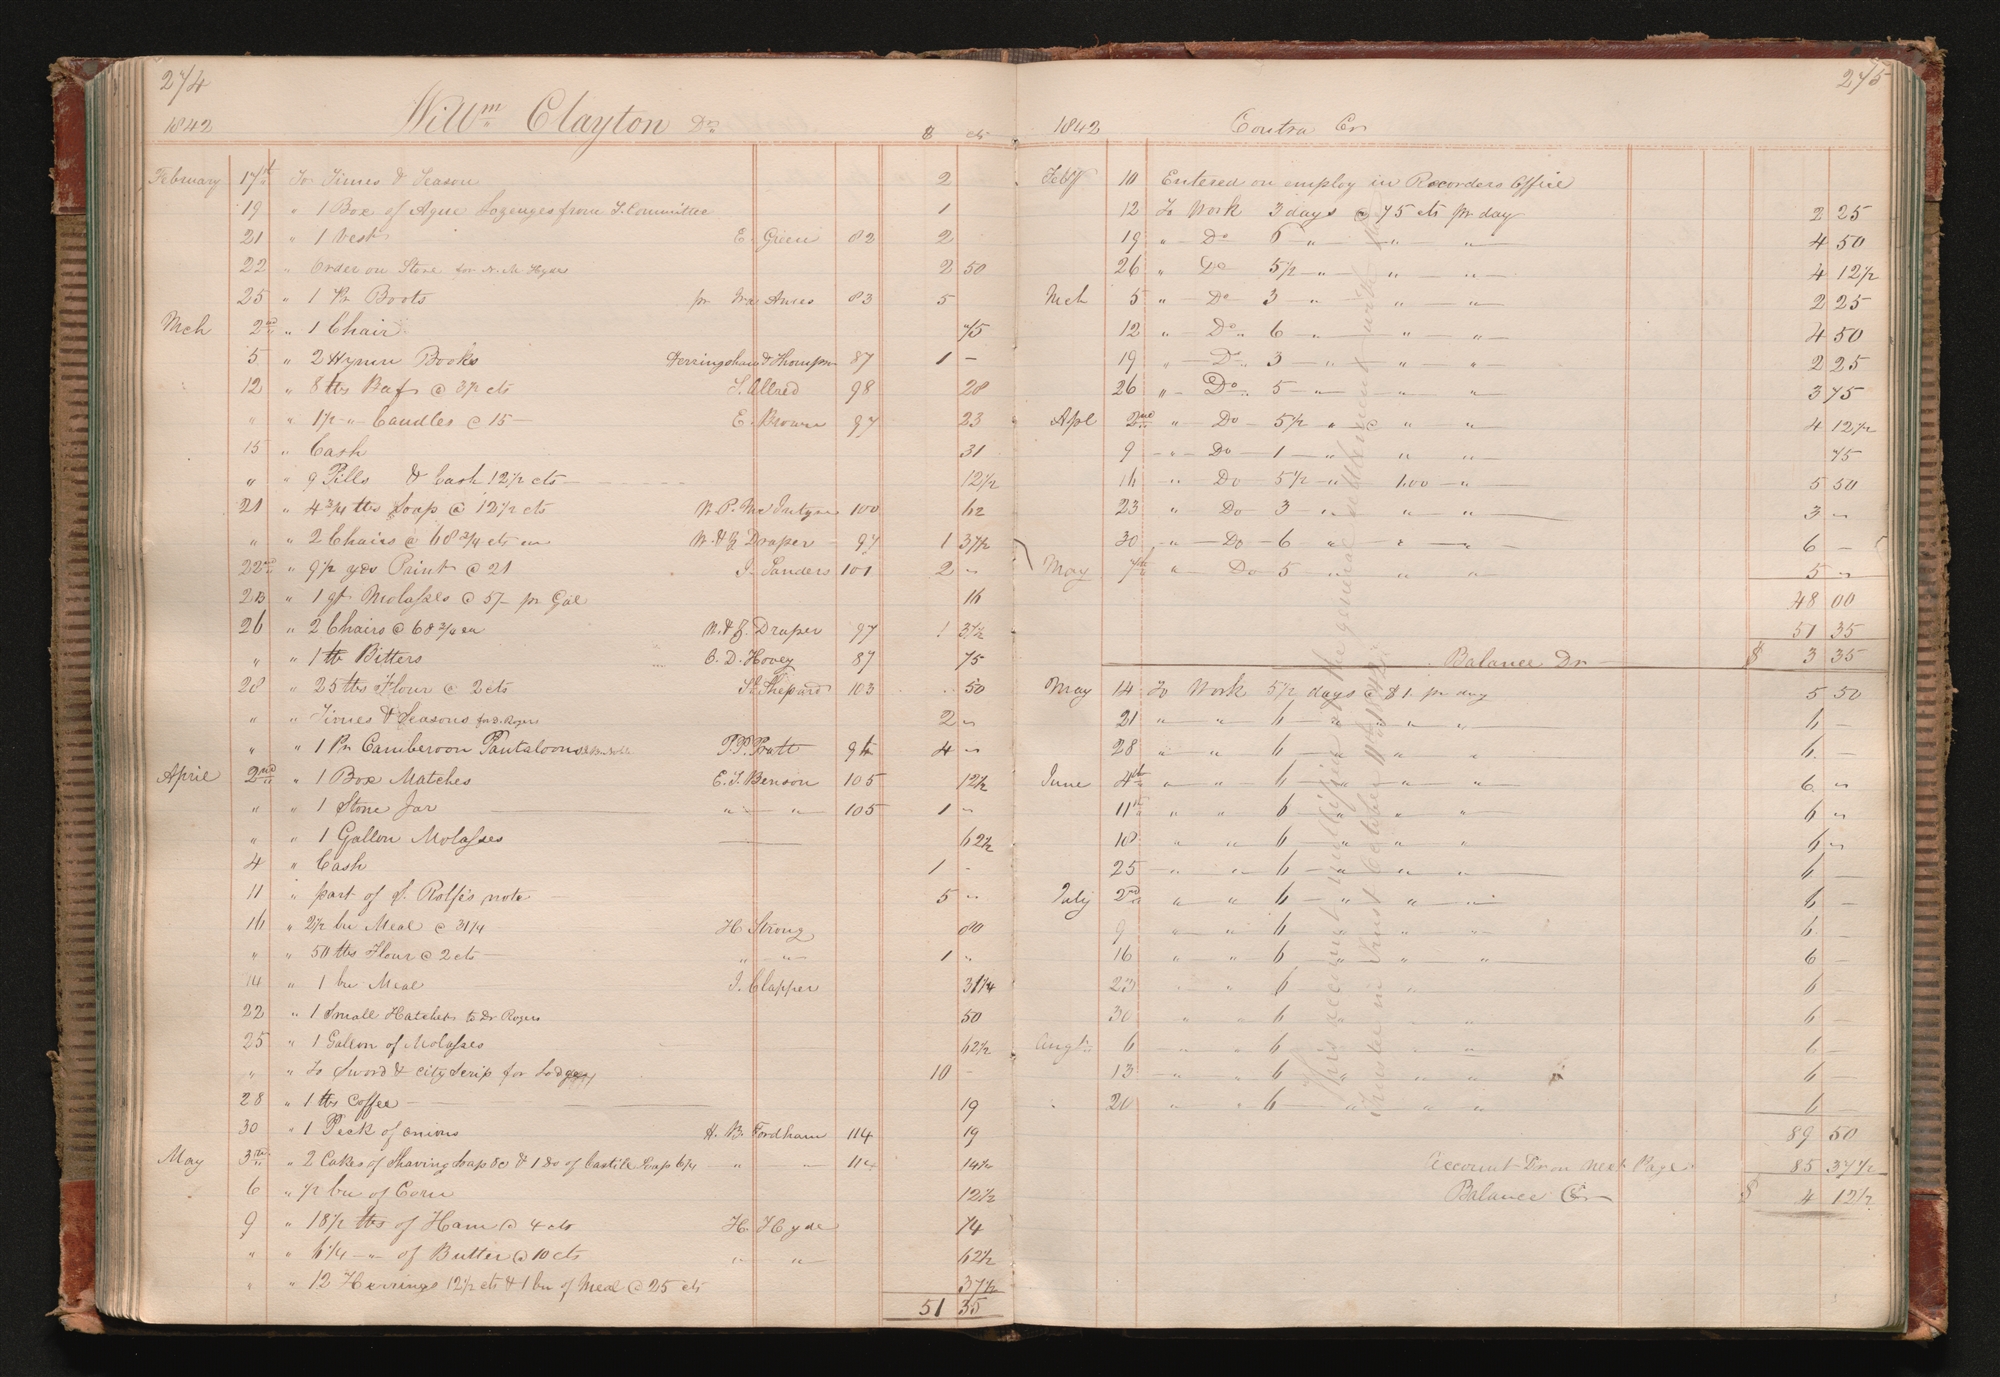 274
1842 Willm Clayton Dr. $ cts
February 17th To Times & Season 2
19 " 1 Box of Ague Lozenges from T. Committee 1
21 " 1 Vest E. Green 82 2
22 " Order on Store for N. M. Hyde 2 50
25 " 1 Pr Boots pr Wm Ames 83 5
Mch 2nd " 1 Chair 75
5 " 2 Hymn Books Herringshaw & Thompson 87 1 –
12 " 8 lbs Beef @ 3 1/2 cts I. Allred 98 28
" " 1 1/2 – " – Candles @ 15 – E. Brown 97 23
15 " Cash 31
" " 9 Pills & Cash 12 1/2 cts 12 1/2
21 " 4 3/4 lbs Soap @ 12 1/2 cts W. P. McIntyre 100 62
" " 2 Chairs @ 68 3/4 cts ea W. & Z. Draper – 97 1 37 1/2
22nd " 9 1/2 yds Print @ 21 J. Sanders 101 2 "
23 " 1 qt Molasses @ 5/– pr Gal 16
26 " 2 Chairs @ 68 3/4 ea W. & Z. Draper 97 1 37 1/2
" " 1 lb Bitters O. D. Hovey 87 75
28 " 25 lbs Flour @ 2 cts Shepard 103 50
" " Times & Seasons for D. Rogers 2 "
" " 1 Pr Camberoon Pantaloons P. P. Pratt 96 4 "
April 2nd " 1 Box Matches E. T. Benson 105 12 1/2
" " 1 Stone Jar " " 105 1 "
" " 1 Gallon Molasses 62 1/2
4 " Cash 1 –
11 " part of S. Rolfe's note 5 "
16 " 2 1/2 bu Meal @ 31 1/4 H. Strong 80
" " 50 lbs Flour @ 2 cts " " 1 "
14 " 1 bu Meal J. Clapper 31 1/4
22 " 1 Small Hatchet to Dr Rogers 50
25 " 1 Gallon of Molasses 62 1/2
" " To Sword & City Scrip for Lodge 10 –
28 " 1 lb Coffee 19
30 " 1 Peck of onions H. B. Fordham 114 19
May 3rd " 2 Cakes of Shaving Soap 8c & 1 Do of Castile Soap 6 1/4 " " 114 14 1/4
6 " 1/2 bu of Corn 12 1/2
9 " 18 1/2 lbs of Ham @ 4 cts H. Hyde 74
" " 6 1/4 – " – of Butter @ 10 cts " " 62 1/2
" " 12 Herrings 12 1/2 cts & 1 bu of Meal @ 25 cts 37 1/2
51 35
275
1842 Contra Cr
Feby 10 Entered on employ in Recorders Office
12 To Work 3 days @ 75 cts pr day 2 25
19 " Do 6 " " " 4 50
26 " Do 5 1/2 " " " 4 12 1/2
Mch 5 " Do 3 " " " 2 25
12 " Do 6 " " " 4 50
19 " Do 3 " " " 2 25
26 " Do 5 " " " 3 75
Apl 2nd " Do 5 1/2 " @ " " 4 12 1/2
9 " Do 1 " " " 75
16 " Do 5 1/2 " 1.00 " 5 50
23 " Do 3 " " " 3 "
30 " Do 6 " " " 6 –
May 7th " Do 5 " " " 5 "
48 00
51 35
Balance Dr $ 3 35
May 14 To Work 5 1/2 days @ $1. pr day 5 50
21 " " 6 " " " 6 –
28 " " 6 " " " 6 –
June 4th " " 6 " " " 6 "
11th " " 6 " " " 6 "
18 " " 6 " " " 6 "
25 " " 6 " " " 6 –
July 2nd " " 6 " " " 6 –
9 " " 6 " " " 6 –
16 " " 6 " " " 6 –
23 " " 6 " " 6 –
30 " " 6 " " " 6 –
Augt 6 " " 6 " " " 6 –
13 " " 6 " " " 6 –
20 " " 6 " " " 6 –
89 50
Account Dr on next Page 85 37 1/2
Balance Cr $ 4 12 1/2
This account included in the general settlement with the
Trustee in Trust October 11th 1842